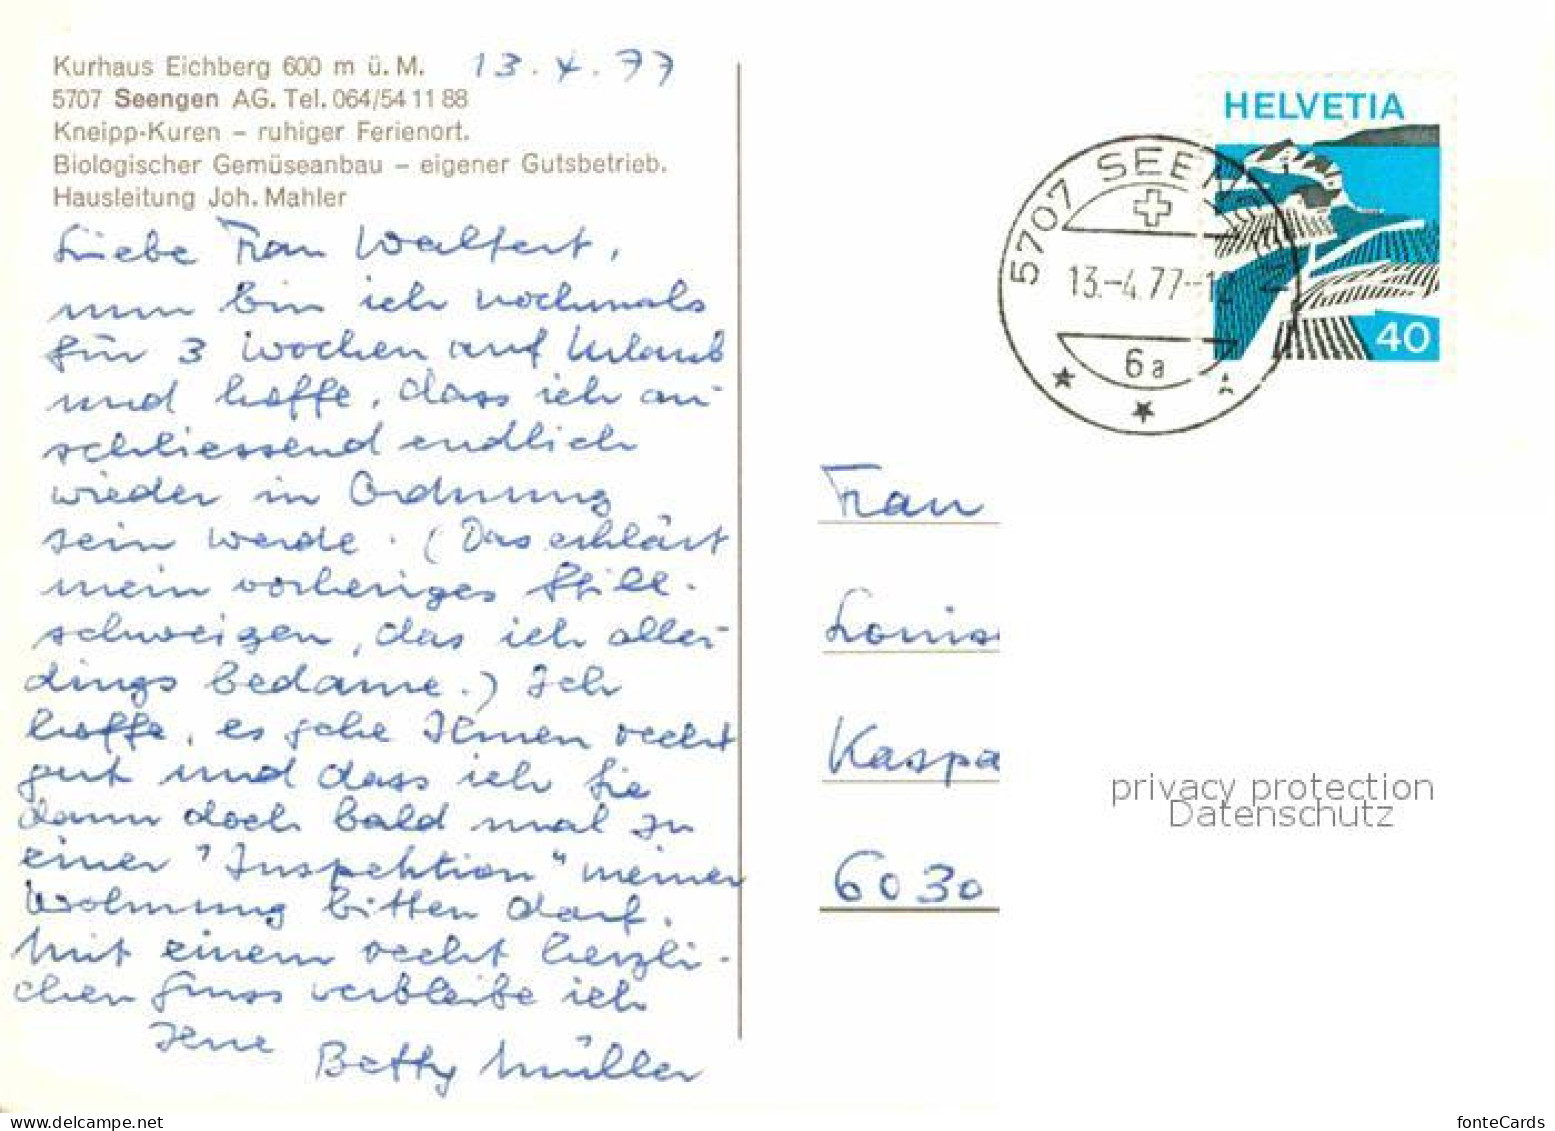 Kurhaus Eichberg 600 m ü. M.
13. 4. 77
5707 Seengen AG. Tel. 064/54 11 88
Kneipp-Kuren – ruhiger Ferienort.
Biologischer Gemüseanbau – eigener Gutsbetrieb.
Hausleitung Joh. Mahler
Liebe Frau Walfert,
nun bin ich nochmals
für 3 Wochen auf Urlaub
und hoffe, dass ich an-
schliessend endlich
wieder in Ordnung
sein werde. (Das erklärt
mein vorheriges Still-
schweigen, das ich aller-
dings bedaure.) Ich
hoffe, es gehe Ihnen recht
gut und dass ich Sie
dann doch bald mal zu
einer "Inspektion" meiner
Wohnung bitten darf.
Mit einem recht herzli-
chen Gruss verbleibe ich
Ihre Betty Müller
HELVETIA
40
5707 SEENGEN
13.-4.77-12
6a
Frau
Louis
Kaspa
6030
privacy protection
Datenschutz
www.delcampe.net
fonteCards